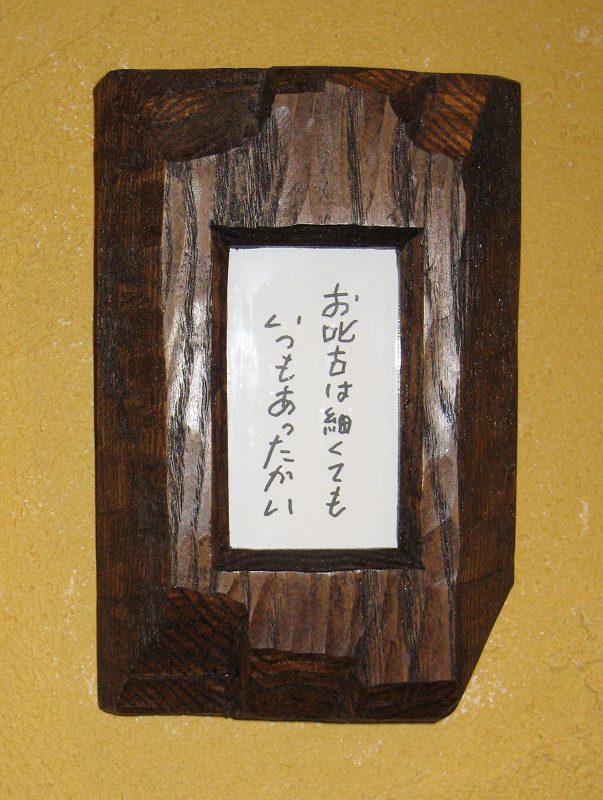 お叱古は細くても
いつもあったかい